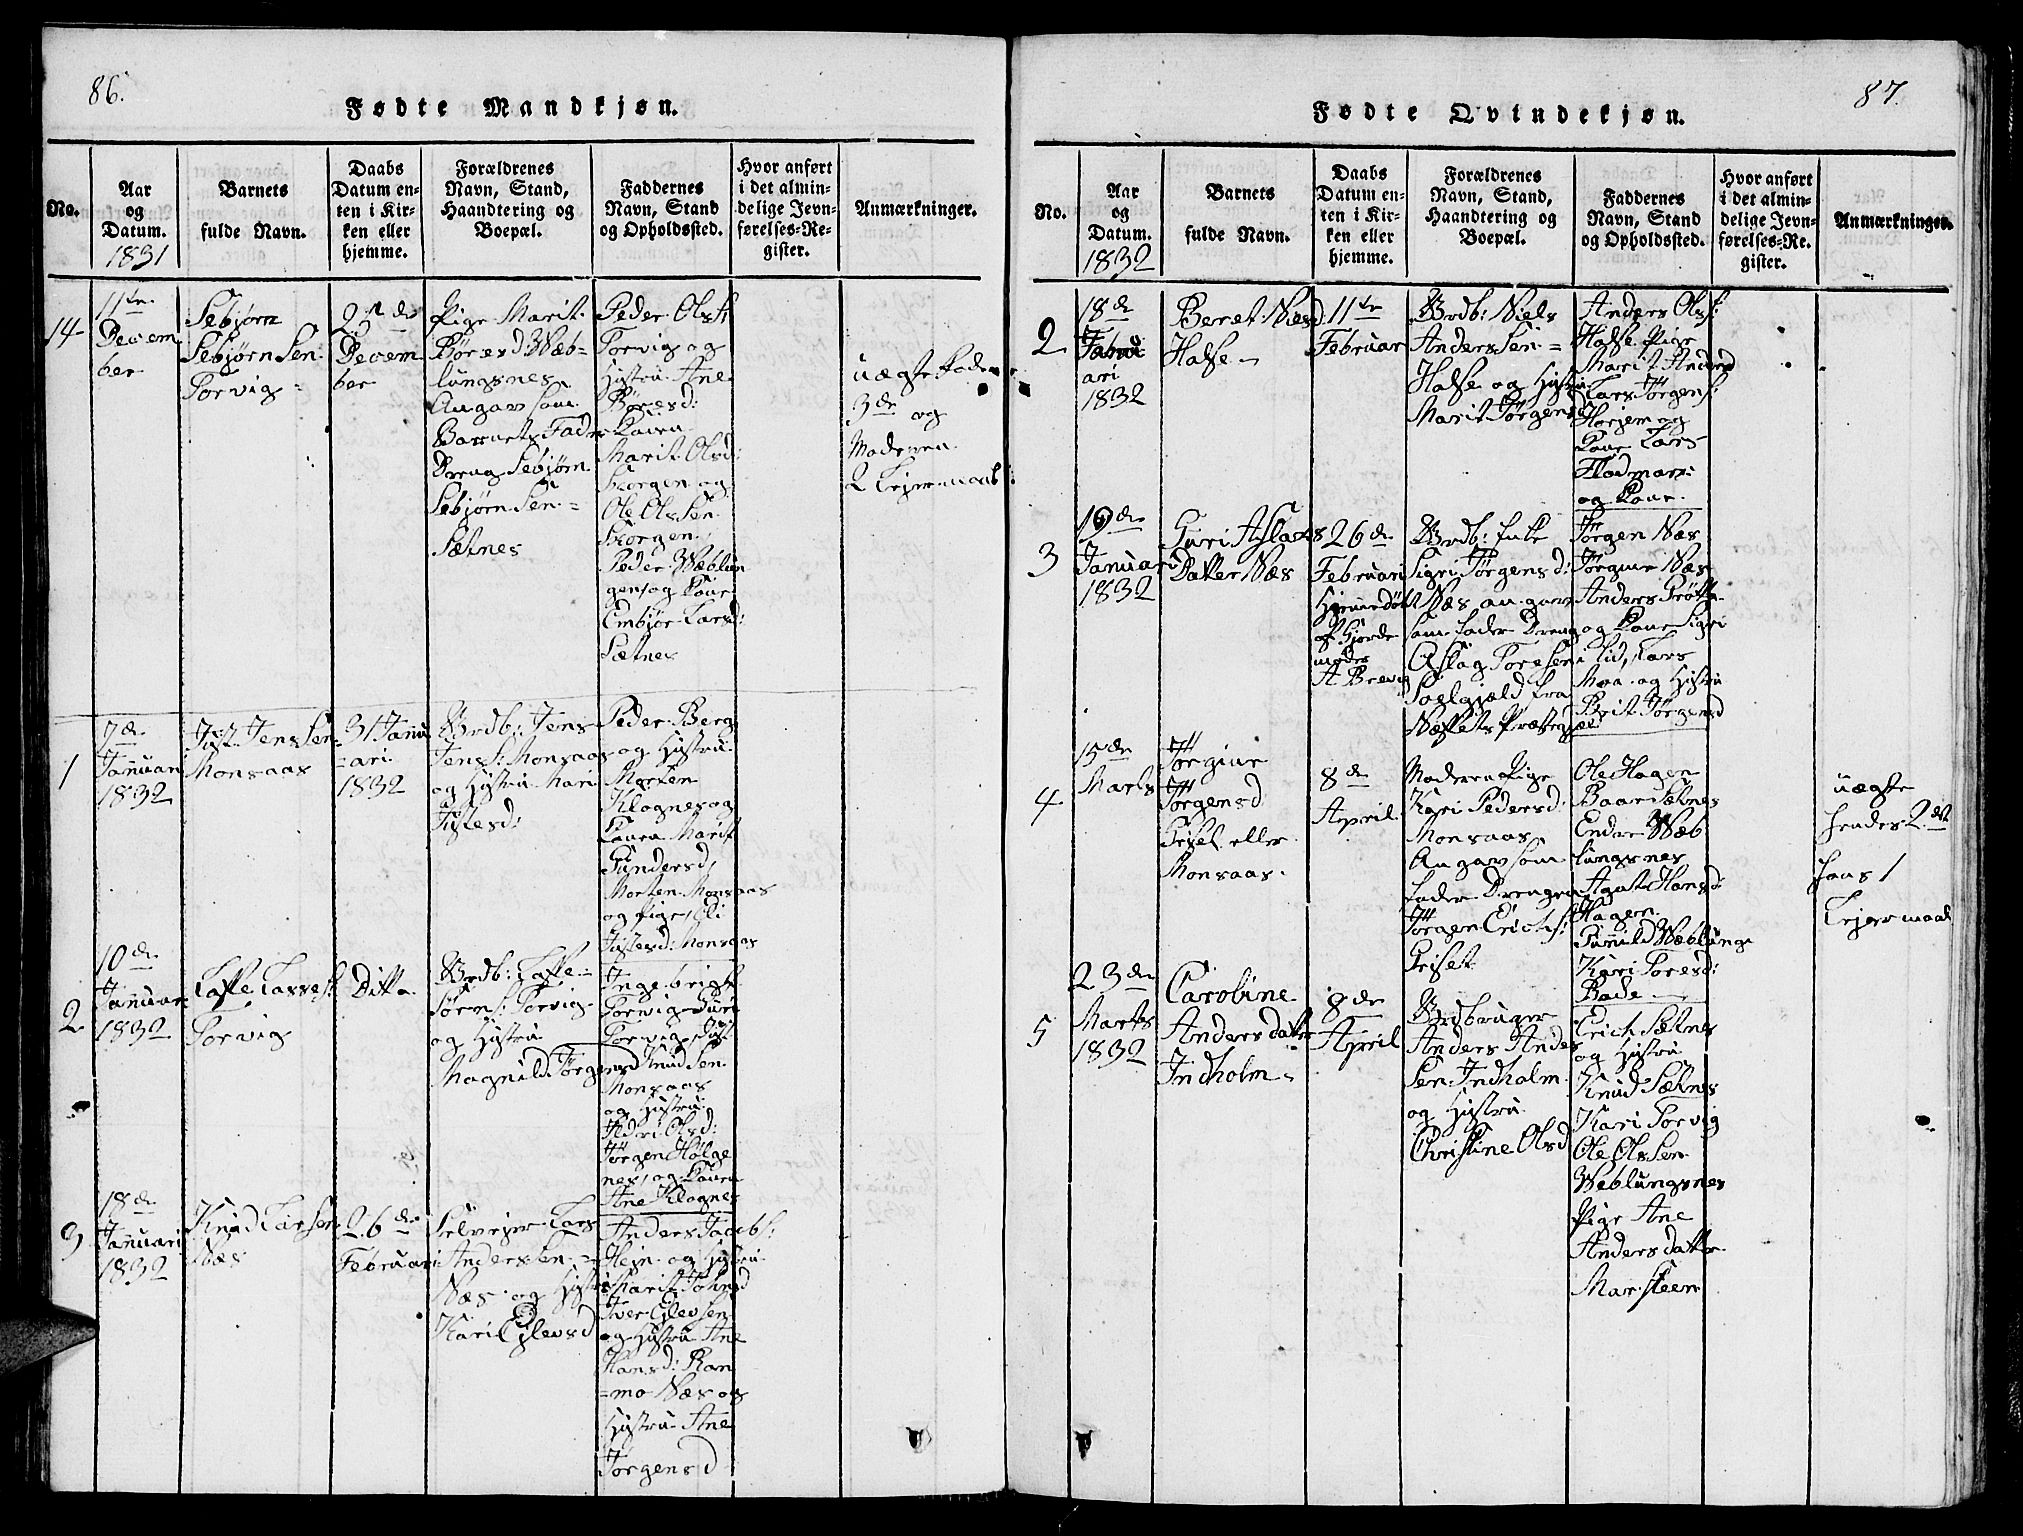 86.
Fødte Mandkjøn.
No.
Aar
og
Datum.
1831
Barnets
fulde Navn.
Daabs
Datum en-
ten i Kir-
ken eller
hjemme.
Forældrenes
Navn, Stand,
Haandtering og
Boepæl.
Faddernes
Navn, Stand
og Opholdssted.
Hvor anført
i det almin-
delige Jevn-
førelses-Re-
gister.
Anmærkninger.
14
11te
Decem
ber
Sebjørn
Sebjørnsen
Torvig
25de
Decem
ber
Pige Marit
Børesd Wæb=
lungsnes
Angav som
Barnets Fader
Dreng Sebjørn
Sebjørnsen=
Sætnes
Peder Olss:
Torvig og
Hustru Ane
Børesd:
Marit Olsd:
Skorgen og
Ole Olssen
Skorgen,
Peder Wæblun
gens og Kone
Embjør Larsd:
Sætnes
uægte Fader
3de og
Moderen
2 Lejermaal
1
7de
Januari
1832
Just Jenssen
Monsaas
31 Janu
=ari
1832
Brdb: Jens
Jens: Monsaas
og Hustru Mari
Justesd:
Peder Berg
og Hustru
Morten
Klognes og
Konen Marit
Gundersd,
Morten Monsaas
og Pige, Eli
Justesd: Monsaas
2
10de
Januar
1832
Lasse Lasses:
Torvig
Ditto
Brdb: Lasse=
Sørens: Torvig
og Hustru
Magnild Jørgensd
Ingebrigt
Torvig Guri
Torvig, Just
Knudsen
Monsaas
og Hustru
Olsd:
Jørgen Holge
nes, og Konen
Ane Klognes
3
18de
Januari
1832
Knud Larsen
Næs
26de
Februari
Selvejer Lars
Anderssen=
Næs og Hustru
Kari Ejlevsd
Anders Jacobs:
Hein og Hustru
Marit Johnsd
Iver Ejlevsen
og Hustru Ane
Hansd: Ran
=mo Næs og
Hustru Ane
Jørgensd
87.
Fødte Qvindekjøn.
No.
Aar
og
Datum.
1832
Barnets
fulde Navn.
Daabs
Datum en-
ten i Kir-
ken eller
hjemme.
Forældrenes
Navn, Stand,
Haandtering og
Boepæl.
Faddernes
Navn, Stand
og Opholdssted.
Hvor anført
i det almin-
delige Jevn-
førelses-Re-
gister.
Anmærkninger.
2
18de
ari
1832
Beret Nielsd
Halse
11te
Februar
Brdb: Niels
Anderssen=
Halse og Hustru
Marit Jørgensd
Anders Olss:
Halse Pige
Marit Andersd
Lars Jørgens:
Horjem og
Kone Lars
Flodmark
og Kone.
3
19de
Januari
1832
Guri Aslags
Datter Næs
26de
Februari
Hjemmedøbt
af Gjorde
moder
A Brevig
Brdb: Enke
Sigri Jørgensd:
Næs angav
som Fader Dreng
Aslag Toresen
Soelgjeld fra
Næssets Præstegjeld
Jørgen Næs
Jørgine Næs
Anders Grøtta
og Kone Sigri
Lid, Lars
Moa og Hustru
Brit Jørgensd
4
15de
Marts
Jørgine
Jørgensd
Griset eller
Monsaas.
8de
April
Moderen Pige
Kari Pedersd:
Monsaas
Angav som
Fader Drengen
Jørgen Erichs:
Griset
Ole Hagen
Baar Sætnes
Endre Wæb
lungsnes
Agat Hansd
Hagen
Gunnild Wæblungs
Kari Toresd:
Bade
uægte
hendes 2det
hans 1
Lejermaal
5
23de
Marts
1832
Caroline
Andersdatter
Indholm
8de
April
Brdbruger
Anders Anders
sen Indholm
og Hustru
Christine Olsd
Erich Sætnes
og Hustru
Knud Sætnes
Kari Torvig
Ole Olssen
Weblungsnes
Pige Ane
Andersdatter
Marsteen